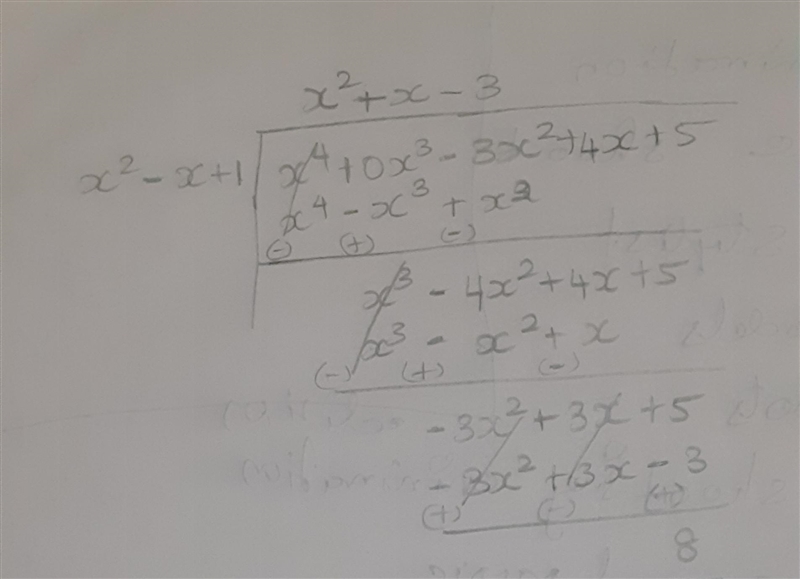 x² + x - 3
x² - x + 1 x⁴ + 0x³ - 3x² + 4x + 5
x⁴ - x³ + x²
(-) (+) (-)
x³ - 4x² + 4x + 5
x³ - x² + x
(-) (+) (-)
- 3x² + 3x + 5
- 3x² + 3x - 3
(+) (-) (+)
8